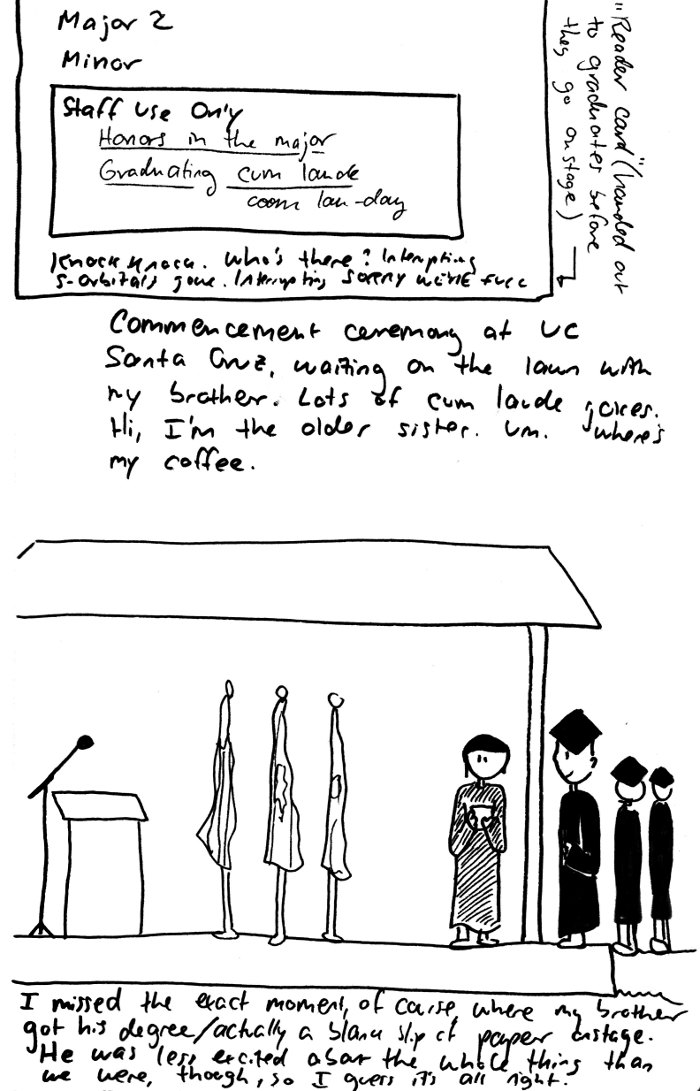 Major 2
Minor
Staff Use Only
Honors in the major
Graduating cum laude
coom lau-day
Knock knock. Who's there? Interrupting
s-orbitals gone. Interrupting sorry we're
"Reader card" (handed out
to graduates before
they go onstage)
Commencement ceremony at UC
Santa Cruz, waiting on the lawn with
my brother. Lots of cum laude jokes.
Hi, I'm the older sister. Um. Where's
my coffee.
I missed the exact moment, of course, where my brother
got his degree/actually a blank slip of paper onstage.
He was less excited about the whole thing than
we were, though, so I guess it's all right.